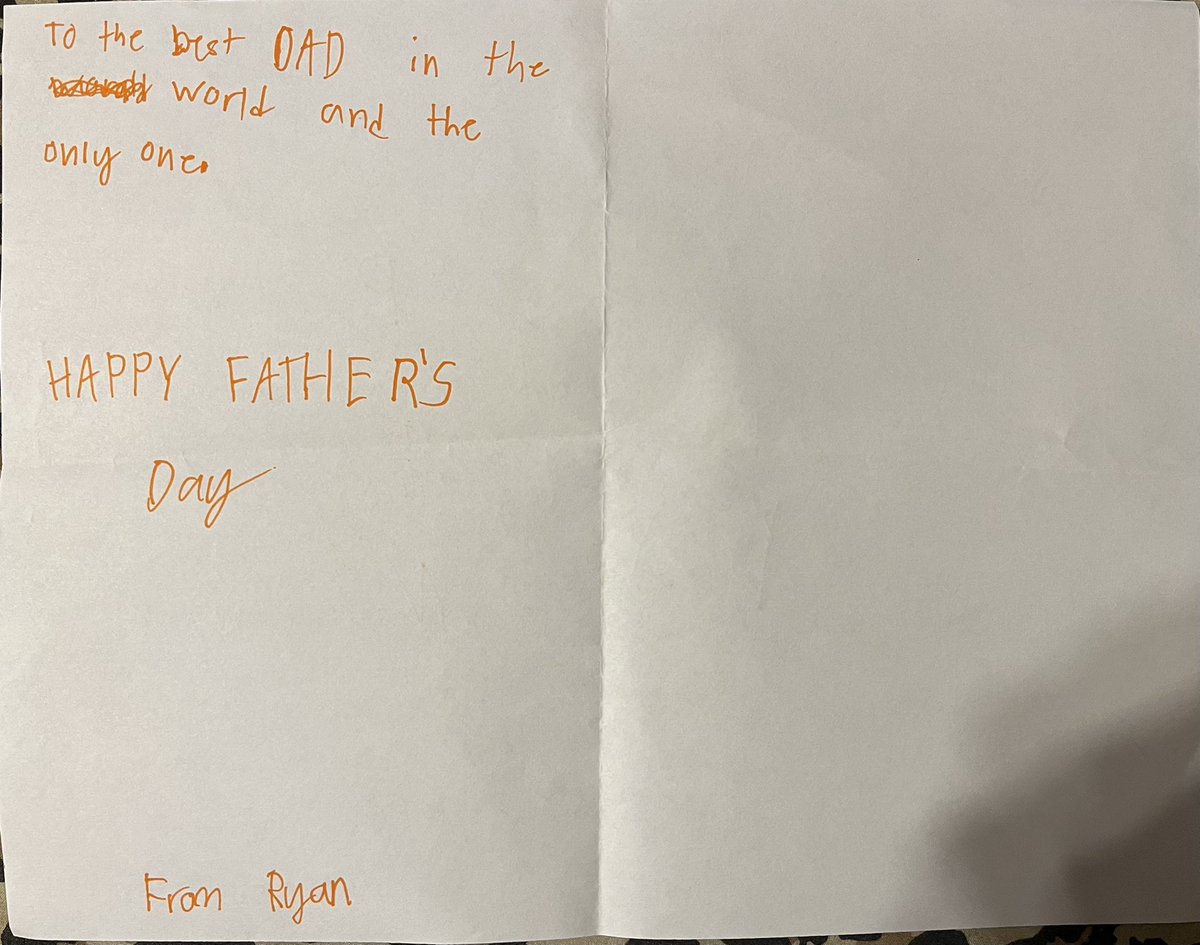 To the best DAD in the
world and the
only one.
HAPPY FATHER'S
Day
From Ryan